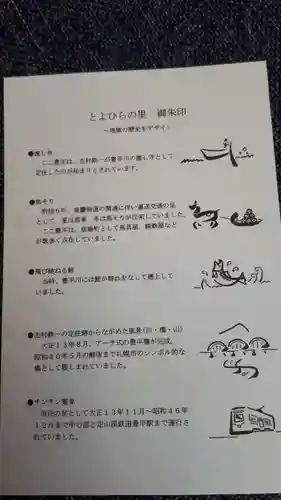 とよひらの里　御朱印
～地域の歴史をデザイン
●渡し舟
ここ豊平は、志村鉄一が豊平川の渡し守として
定住したのが始まりとされています。
●馬そり
明治６年、
として、夏は馬車、冬は馬そりが往来していました。
ここ豊平は、宿場町として馬具屋、蹄鉄屋など
が数多く点在していました。
●飛び跳ねる鮭
当時、豊平川には鮭が群れをなして遡上して
いました。
●志村鉄一の定住跡からながめた風景(川・橋・山)
大正１３年８月、アーチ式の豊平橋が完成。
昭和４０年５月の解体まで札幌市のシンボル的な
橋として親しまれていました。
●チンチン電車
市民の足として大正１３年１１月～昭和４６年
１２月まで中心部と定山渓鉄道豊平駅まで運行さ
れていました。